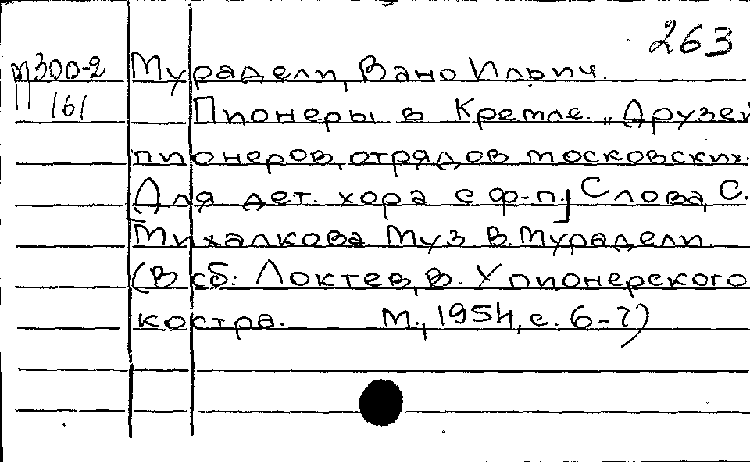 263
М300-2 Мурадели, Вано Ильич.
161 Пионеры в Кремле. „Друзей
пионеров, отрядов московских.
Для дет. хора с ф-п.] Слова, С.
Михалкова. Муз. В. Мурадели.
(В сб: Локтев, В. У пионерского
костра. М., 1954, с. 6-7)